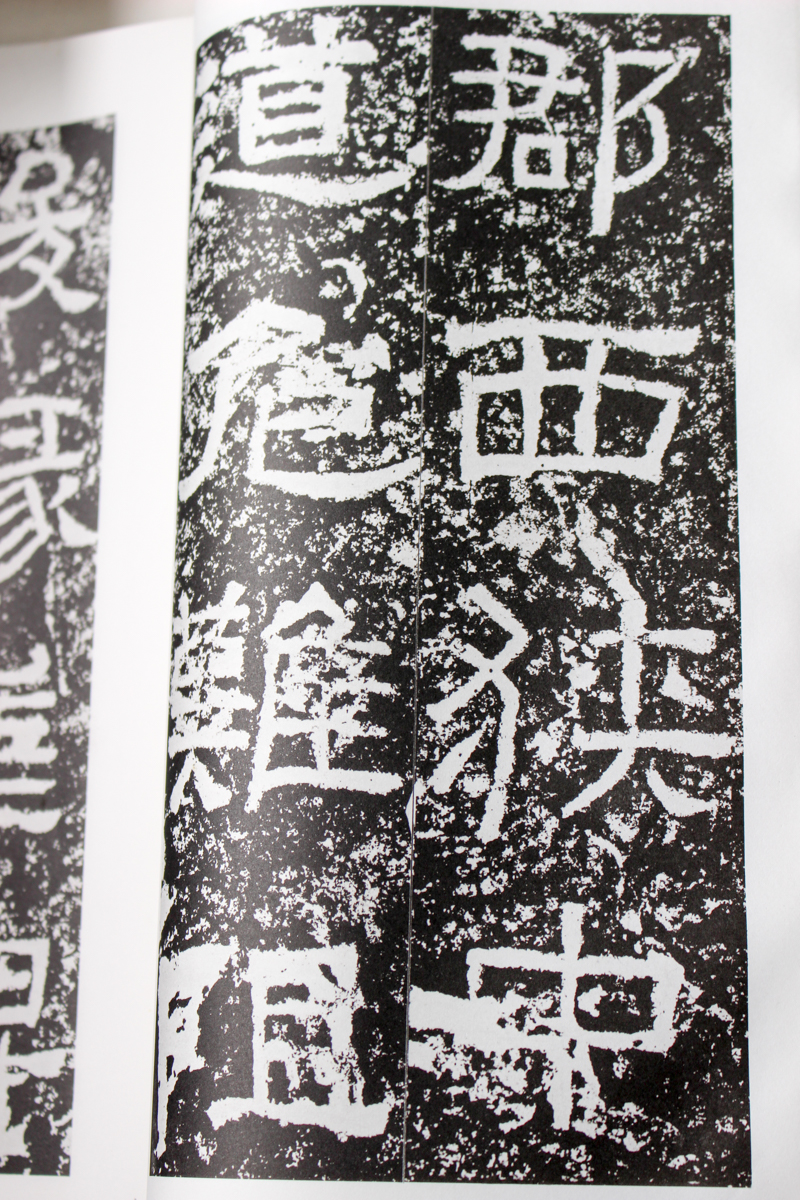 郡西狹中
道危難阻